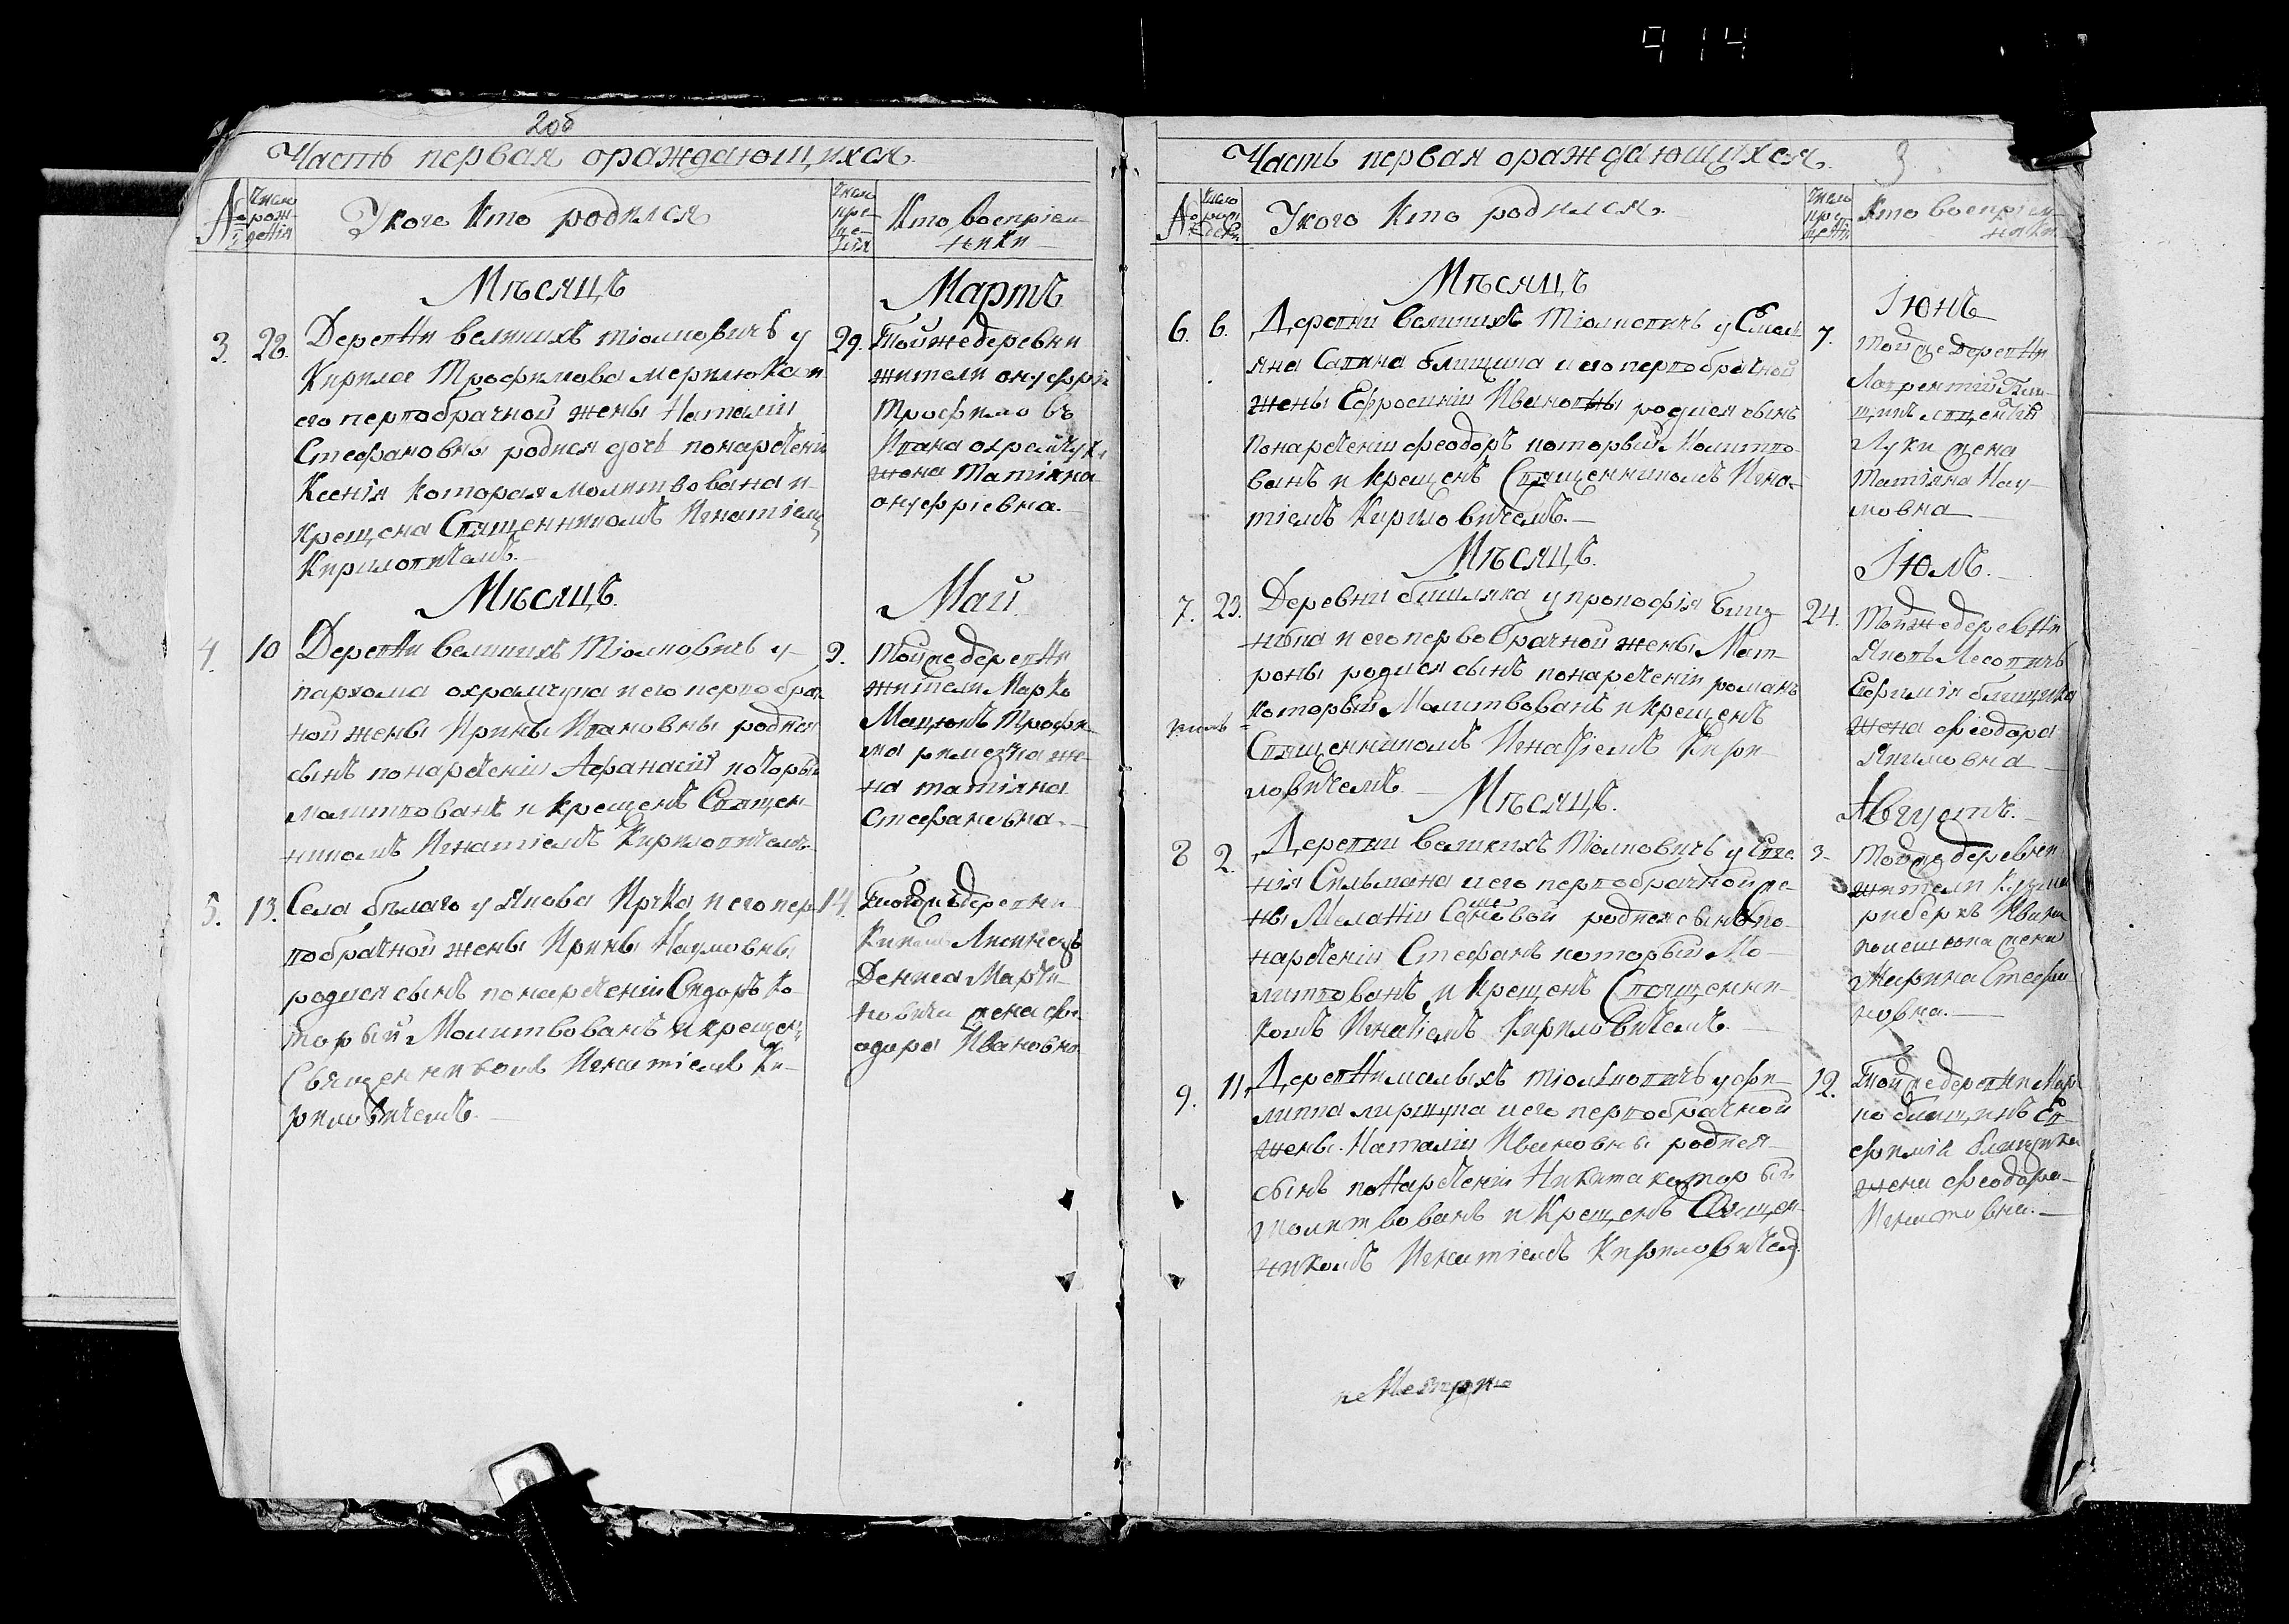 914
2об
Часть первая ораждающихся.
№
Число рож- денія
Укого Кто родился
Число кре- ще- нія
Кто Воспріем- ники
Мѣсяцъ
Мартъ
3. 28.
Деревни великихъ тіолковичъ у
Кирила Трофимова мерилюка и
его первобрачной жены Наталіи
Стефановны родися дочь понаречени
Ксенія Которая молитвована и
крещена Священникомъ Игнатіемъ
Кириловичемъ.
29.
Тойжедеревни
жители онуфрій
Трофимовъ
Ивана охремчука
жена Татіяна
онуфріевна.
Мѣсяцъ.
Май
4. 10
Деревни великихъ Тіолковичъ у
пархома охрамчука и его первобрач
ной жены Ирины Ивановны родися
сынъ понареченіи Афанасій которы
молитвованъ и крещенъ Священ
никомъ Игнатіемъ Кириловичемъ
9.
Тойжедеревни
жители Марко
Мацюкъ Трофи
ма жe-
на татіяна
Стефановна.
5. 13.
Села бѣлаго у Якова Ирчка и его пер
вобрачной жены Ирины Наумовны
родися сынъ понареченіи Сидоръ ко
торый Молитвованъ и крещен
Священникомъ Игнатіемъ Ки-
риловичемъ.
14.
деревни
Дениса Марти
новича жена фе
одора Ивановна
Часть первая ораждающихся.
3
№
Укого Кто родился.
Число кре- щенія
Кто воспріем- ники
Мѣсяцъ
Іюнь
6. 6.
Деревни Великихъ Тіолковичъ у Емел
яна Савина блищика и его первобрачной
жены Ефросиніи Ивановны родися сынъ
понареченіи феодоръ который Молитво
ванъ и крещенъ Священникомъ Игна-
тіемъ Кириловичемъ.
7.
Тойжедеревни
Лаврентій
Луки жена
Татіяна Нау-
мовна
Мѣсяцъ.
Іюль.
7. 23.
Деревни у прокофія
и его первобрачной жены Мат-
роны родися сынъ понареченіи романъ
который Молитвованъ и крещенъ
Священникомъ Игнатіемъ Кири-
ловичемъ
24.
Тойжедеревни
Яковъ Лесовичъ
Ефимія блищика
жена феодора
Якимовна
Мѣсяцъ.
Августъ.
8 2.
Деревни Великихъ Тіолковичъ у Евге
нія Сильмана и его первобрачной же-
ны Меланіи родися сынъ по-
нареченіи Стефанъ который Мо-
литвованъ и Крещенъ Священни-
комъ Игнатіемъ Кириловичемъ.
3.
Тойжедеревни
жители Кузма
Ивана
жена
Марина Стефа
новна.
9. 11.
Деревни малыхъ тіолковичъ у фи-
липпа лирщука и его первобрачной
жены Наталіи Ивановны родися
сынъ понареченіи Никита которы
Молитвованъ и Крещенъ Священ
никомъ Игнатіемъ Кириловичем
12.
Тойжедеревни Мар
ко блищикъ Ев
фиміа блищика
жена феодора
Игнатовна.